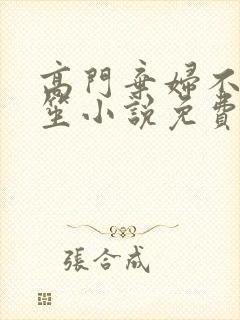 高門棄婦不
笙小說免費
張合成